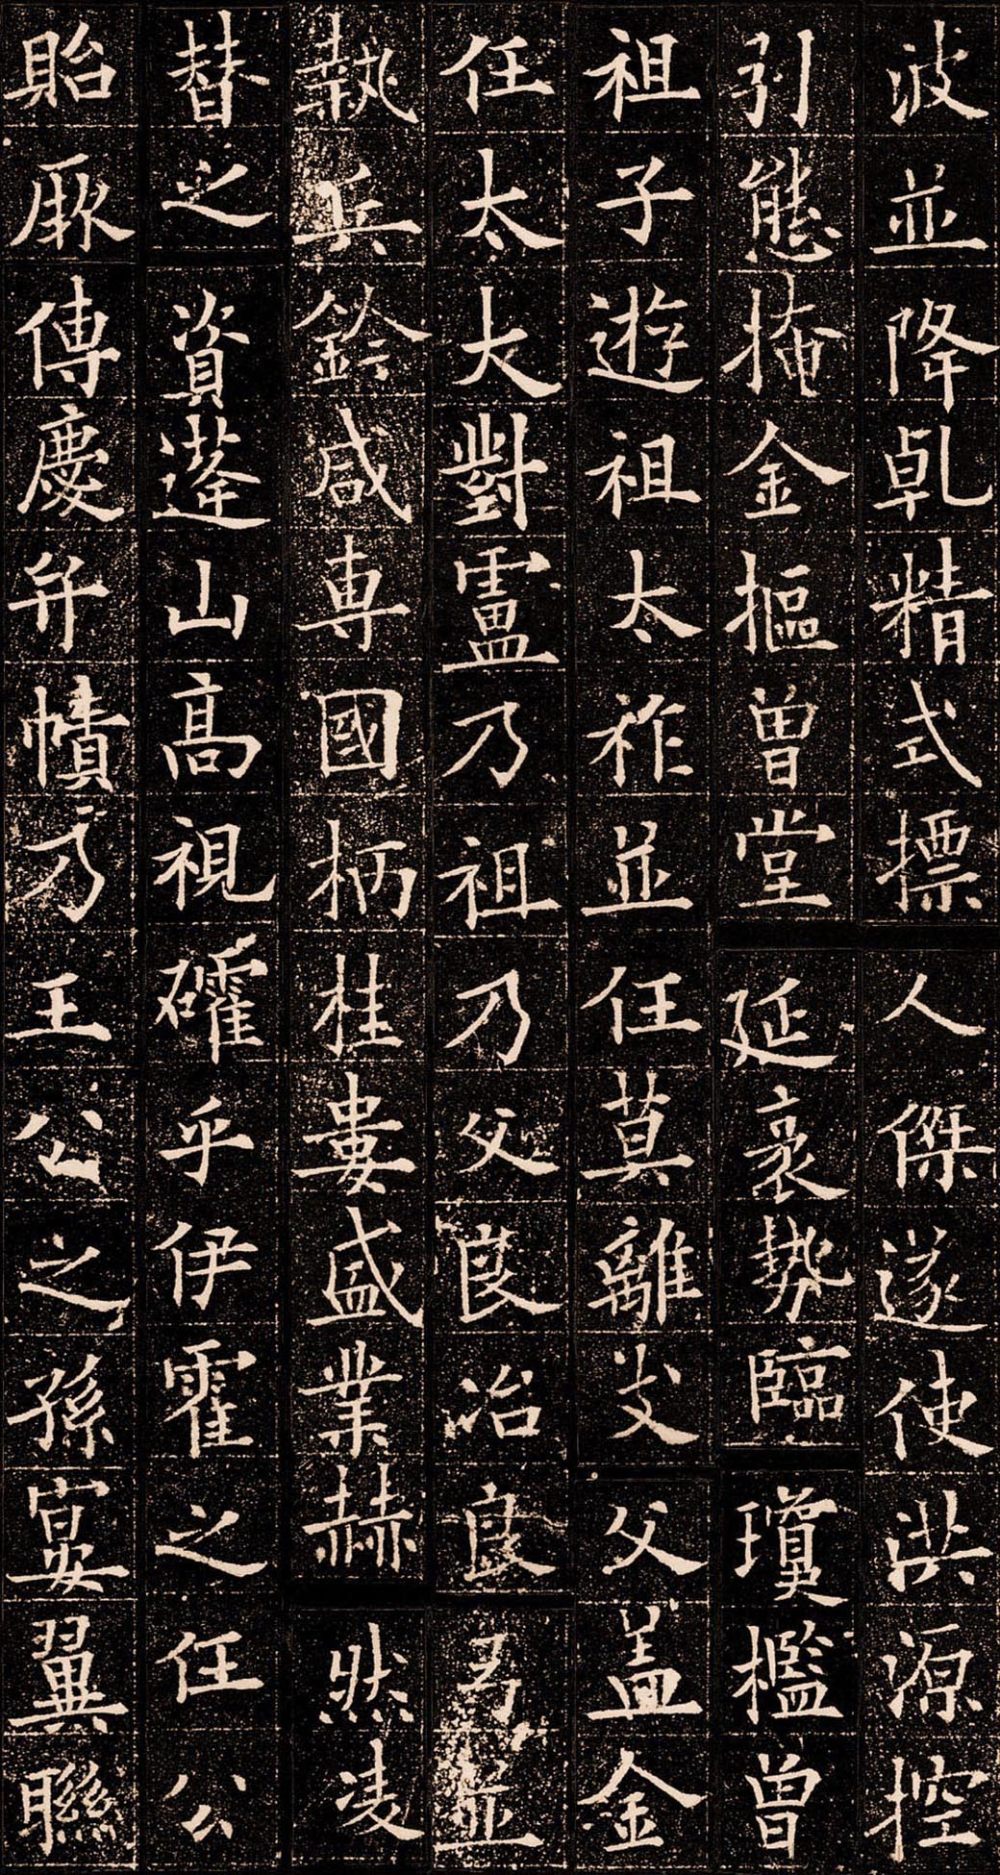 波並降乹精式摽人傑遂使洪源控
引態掩金摳曽堂延袤勢臨瓊檻曽
祖子遊祖太祚並任莫離支父蓋金
任太大對盧乃祖乃父良冶良弓並
執兵鈐咸専國柄桂婁盛業赫然凌
替之資蓬山高視確乎伊霍之任公
貽厥傳慶弁幘乃王公之孫宴翼聯